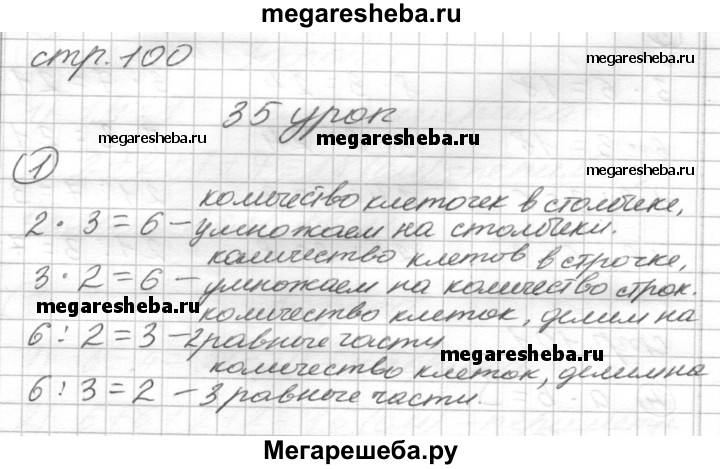 megaresheba.ru
стр. 100
megaresheba.ru
35 урок
megaresheba.ru
megaresheba.ru
1
megaresheba.ru
количество клеточек в столбике,
2 · 3 = 6 – умножаем на столбики.
количество клетов в строчке,
3 · 2 = 6 – умножаем на количество строк.
megaresheba.ru
количество клеток, делим на
6 : 2 = 3 – 2 равные части
megaresheba.ru
количество клеток, делим на
6 : 3 = 2 – 3 равные части.
Мегарешеба.ру